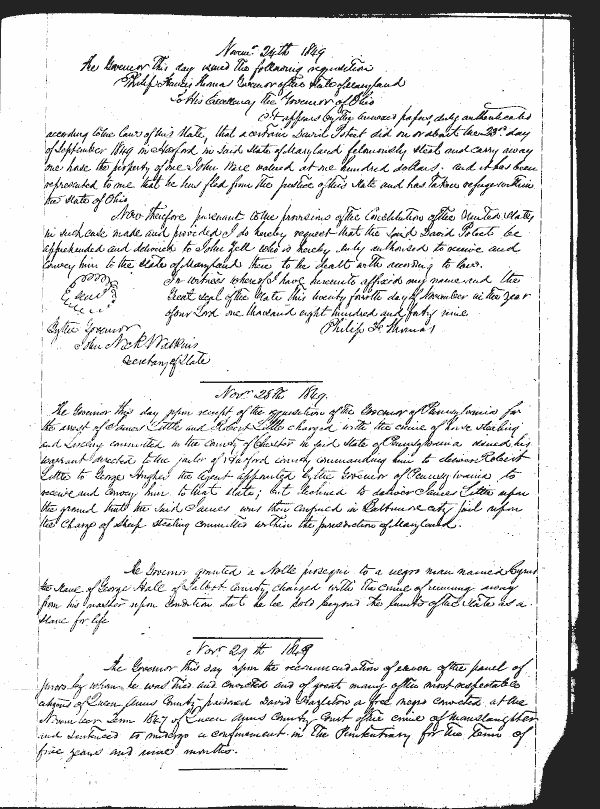 Novem. 24th 1849
The Governor this day issued the following requisition
Philip Francis Thomas Governor of the State of Maryland
To His Excellency the Governor of Ohio
It appears by the annexed papers, duly authenticated
according to the laws of this State, that a certain David Poteet did on or about the 28th day
of September 1849 in Harford in said State of Maryland feloniously steal and carry away
one horse the property of one John Ware valued at one hundred dollars. and it has been
represented to me that he has fled from the justice of this State and has taken refuge within
the State of Ohio
Now therefore pursuant to the provisions of the Constitution of the United States
in such case made and provided, I do hereby request that the said David Poteet be
apprehended and delivered to John Zell who is hereby duly authorised to receive and
convey him to the State of Maryland there to be dealt with according to law.
In witness whereof I have hereunto affixed my name and the
Great Seal of the State this twenty fourth day of November in the year
of our Lord one thousand eight hundred and forty nine
By the Governor
Philip F. Thomas
John Nick Watkins
Secretary of State
Novr. 28th 1849.
The Governor this day upon receipt of the requisition of the Governor of Pennsylvania for
the arrest of James Little and Robert Little charged with the crime of horse stealing
and Larceny committed in the County of Chester in said State of Pennsylvania issued his
warrant directed to the jailer of Harford county commanding him to deliver Robert
Little to George Hughes the Agent appointed by the Governor of Pennsylvania to
receive and convey him to that state; but declined to deliver James Little upon
the ground that the said James was then confined in Baltimore city jail upon
the charge of Sheep Stealing committed within the jurisdiction of Maryland.
The Governor granted a Nolle prosequi to a negro man named Cyrus
the Slave of George Hale of Talbot County, charged with the crime of running away
from his master upon condition that he be sold beyond the limits of the State as a
slave for life
Novr 29th 1849
The Governor this day upon the recommendation of eleven of the panel of
jurors by whom he was tried and convicted and of great many of the most respectable
citizens of Queen Anns County pardoned David a free negro convicted at the
November Term 1847 of Queen Anns County Court of the crime of manslaughter
and sentenced to undergo a confinement in the Penitentiary for the term of
five years and nine months.